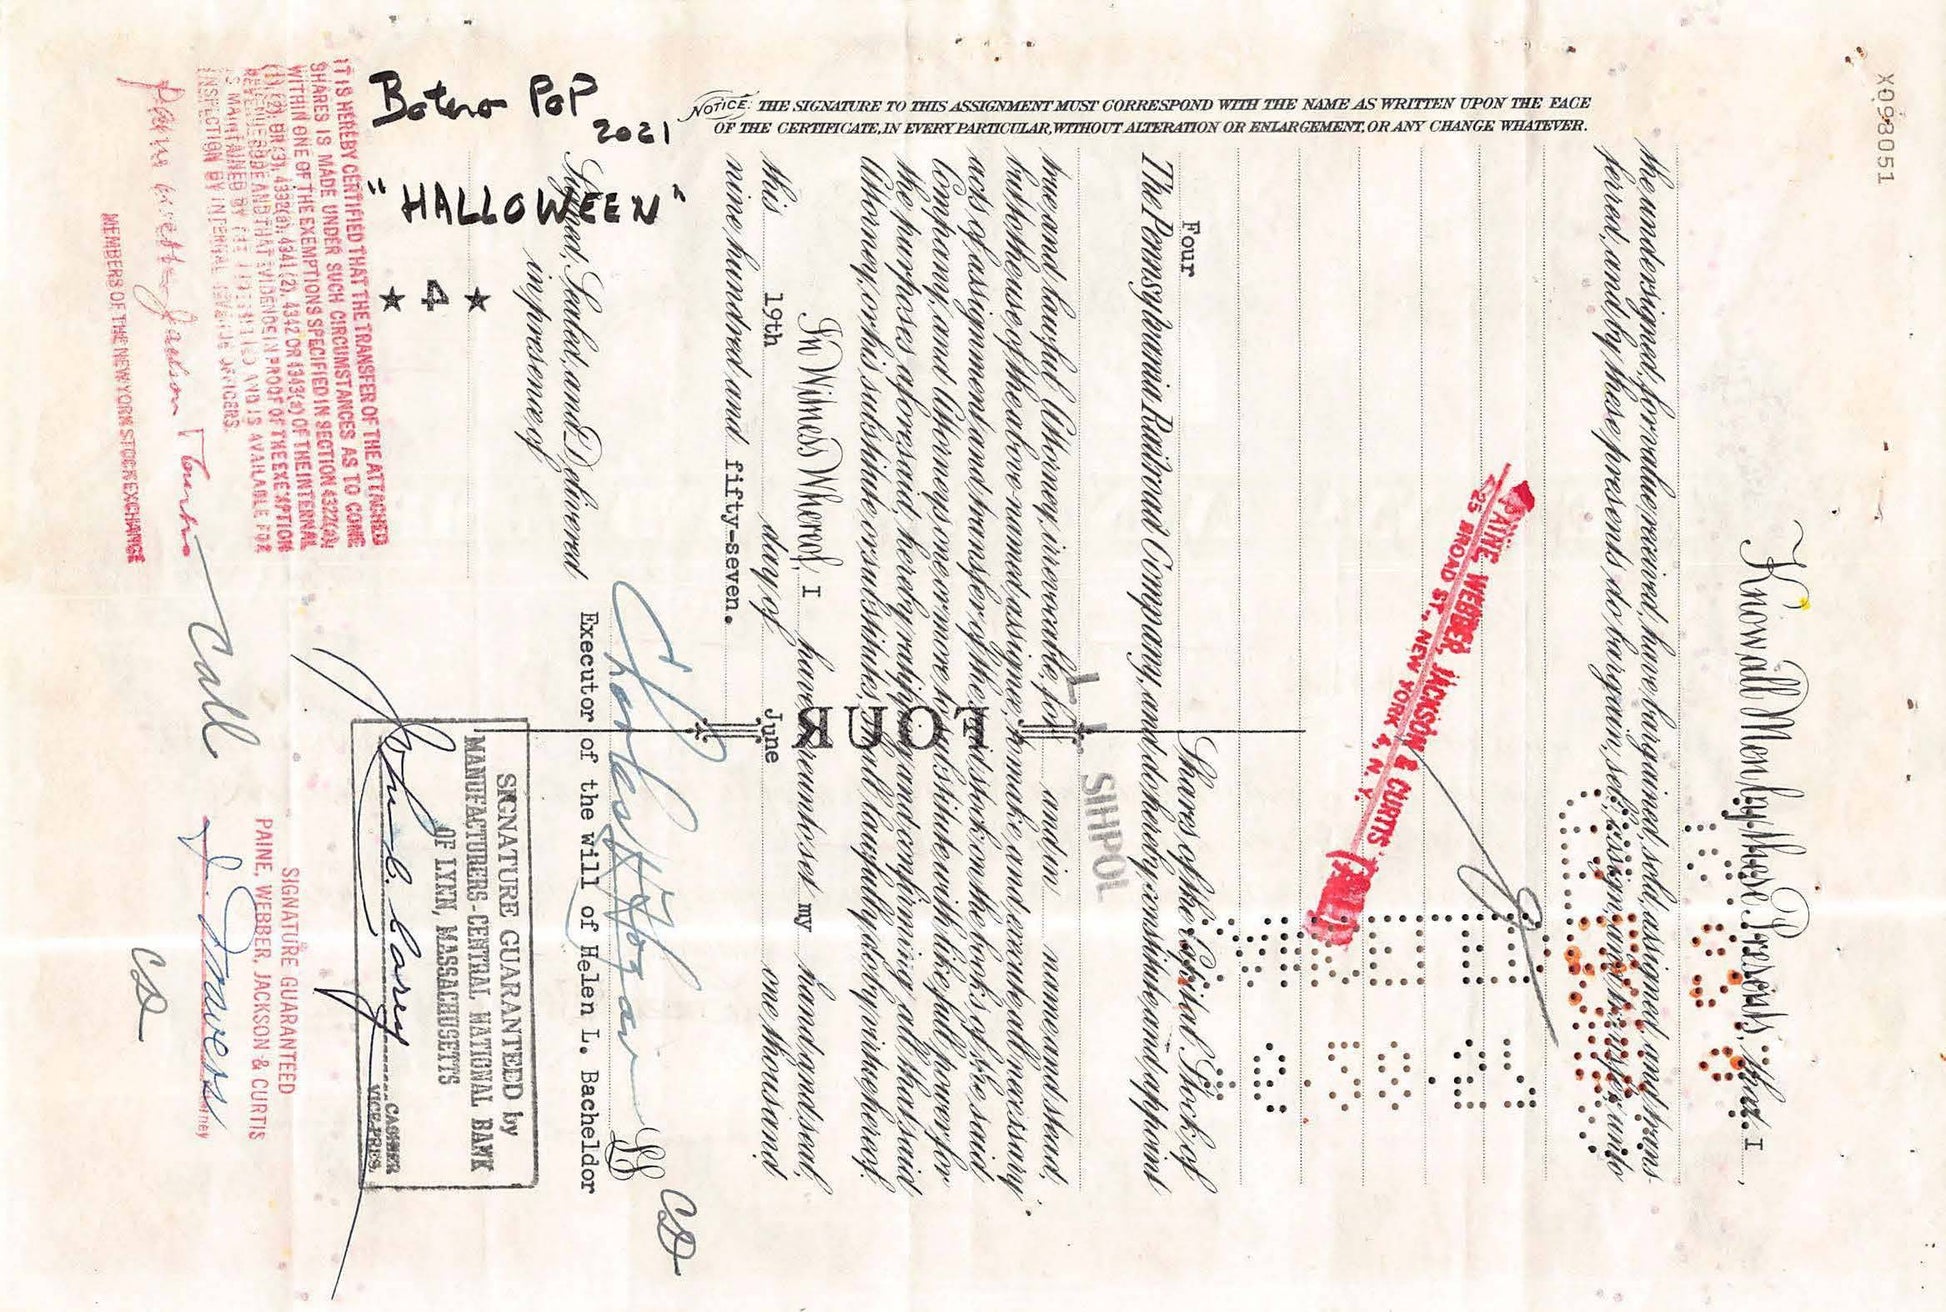 Botero PoP
2021
"HALLOWEEN"
★ 4 ★
NOTICE: THE SIGNATURE TO THIS ASSIGNMENT MUST CORRESPOND WITH THE NAME AS WRITTEN UPON THE FACE
OF THE CERTIFICATE, IN EVERY PARTICULAR, WITHOUT ALTERATION OR ENLARGEMENT, OR ANY CHANGE WHATEVER.
X098051
Know all Men by these Presents, that I
the undersigned, for value received, have bargained, sold, assigned, and trans-
ferred, and by these presents do bargain, sell, assign, and transfer, unto
PAINE, WEBBER, JACKSON & CURTIS
25 BROAD ST., NEW YORK 4, N. Y.
Four Shares of the Capital Stock of
The Pennsylvania Railroad Company, and do hereby constitute and appoint
L L SIHPOL
true and lawful Attorney, irrevocable, for and in name and stead,
but to the use of the above-named assignee, to make and execute all necessary
acts of assignment and transfer of the said stock on the books of the said
Company, and Attorneys one or more to substitute with like full power for
the purposes aforesaid, hereby ratifying and confirming all that said
Attorney, or his substitute or substitutes, shall lawfully do by virtue hereof.
FOUR
In Witness Whereof, I have hereunto set my hand and seal,
this 19th day of June one thousand
nine hundred and fifty-seven.
Signed, Sealed, and Delivered
in presence of
Executor of the will of Helen L. Bacheldor
CD
SIGNATURE GUARANTEED by
MANUFACTURERS-CENTRAL NATIONAL BANK
OF LYNN, MASSACHUSETTS
John E. Carey
CASHIER
VICE-PRES.
IT IS HEREBY CERTIFIED THAT THE TRANSFER OF THE ATTACHED
SHARES IS MADE UNDER SUCH CIRCUMSTANCES AS TO COME
WITHIN ONE OF THE EXEMPTIONS SPECIFIED IN SECTION
(1), (2), OR (3), 4332(a), 4341(2), 4342 OR 4343(a) OF THE INTERNAL
REVENUE CODE AND THAT EVIDENCE IN PROOF OF THE EXEMPTION
IS MAINTAINED BY THE AND IS AVAILABLE FOR
INSPECTION BY INTERNAL REVENUE OFFICERS.
MEMBERS OF THE NEW YORK STOCK EXCHANGE
Call
SIGNATURE GUARANTEED
PAINE, WEBBER, JACKSON & CURTIS
CD